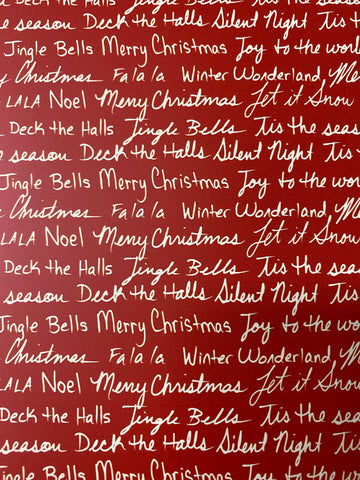 season Deck the Halls Silent Night Tis
Jingle Bells Merry Christmas Joy to the worl
y Christmas Fa la la Winter Wonderland, Me
LALA Noel Merry Christmas Let it Snow
Deck the Halls Jingle Bells Tis the sea
e season Deck the Halls Silent Night Tis
Jingle Bells Merry Christmas Joy to the wor
Christmas Fa la la Winter Wonderland, M
LALA Noel Merry Christmas Let it Snow
Deck the Halls Jingle Bells Tis the sea
season Deck the Halls Silent Night Tis
Jingle Bells Merry Christmas Joy to the wor
Christmas Fa la la Winter Wonderland, M
LALA Noel Merry Christmas Let it Snow
Deck the Halls Jingle Bells Tis the sea
season Deck the Halls Silent Night Tis
Jingle Bells Merry Christmas Joy to the w